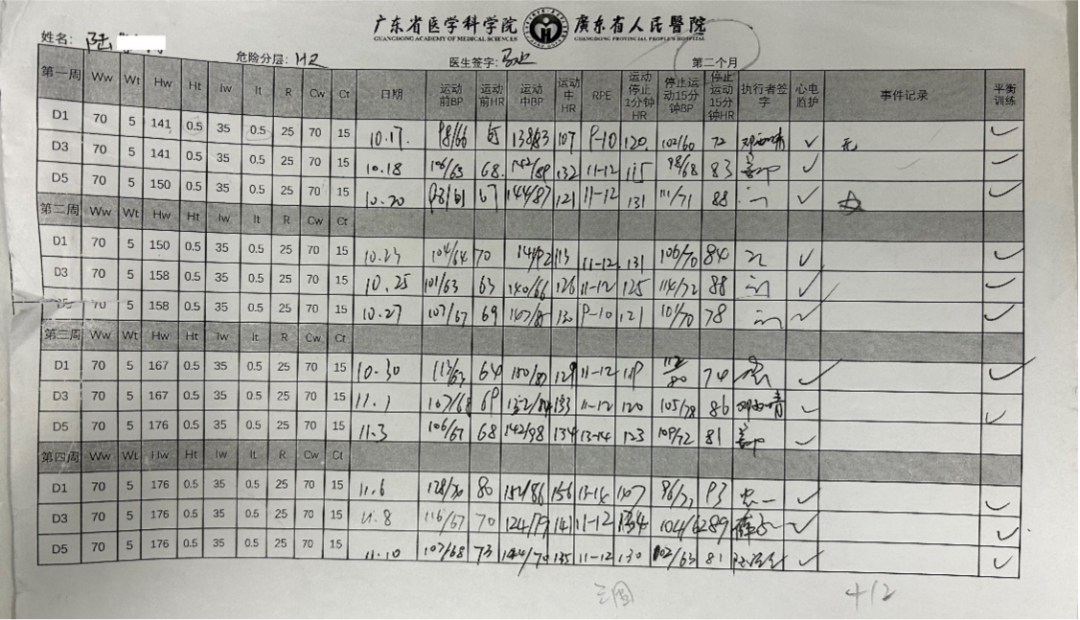 广东省医学科学院 廣東省人民醫院
GUANGDONG ACADEMY OF MEDICAL SCIENCES GUANGDONG PROVINCIAL PEOPLE'S HOSPITAL
姓名: 陆
危险分层: 医生签字: 第二个月
第一周 Ww Wt Hw Ht Iw It R Cw Ct 日期 运动前BP 运动前HR 运动中BP 运动中HR RPE 运动停止1分钟HR 停止运动15分钟BP 停止运动15分钟HR 执行者签字 心电监护 事件记录 平衡训练
D1 70 5 141 0.5 35 0.5 25 70 15 10.17 98/66 65 138/83 107 9-10 120 102/60 72 ✓ 无 ✓
D3 70 5 141 0.5 35 0.5 25 70 15 10.18 106/65 68 132 11-12 115 98/68 83 ✓ ✓
D5 70 5 150 0.5 35 0.5 25 70 15 10.20 67 144/87 121 11-12 131 111/71 88 ✓ ✓
第二周 Ww Wt Hw Ht Iw It R Cw Ct
D1 70 5 150 0.5 35 0.5 25 70 15 10.23 104/64 70 113 11-12 131 106/70 84 ✓ ✓
D3 70 5 158 0.5 35 0.5 25 70 15 10.25 101/63 63 140/86 126 11-12 125 114/72 88 ✓ ✓
D5 70 5 158 0.5 35 0.5 25 70 15 10.27 107/67 69 130 9-10 121 101/70 78 ✓ ✓
第三周 Ww Wt Hw Ht Iw It R Cw Ct
D1 70 5 167 0.5 35 0.5 25 70 15 10.30 113/63 64 129 11-12 119 112/80 74 ✓ ✓
D3 70 5 167 0.5 35 0.5 25 70 15 11.1 107/68 69 133 11-12 120 105/78 86 ✓ ✓
D5 70 5 176 0.5 35 0.5 25 70 15 11.3 106/67 68 142/98 134 13-14 123 109/72 81 ✓ ✓
第四周 Ww Wt Hw Ht Iw It R Cw Ct
D1 70 5 176 0.5 35 0.5 25 70 15 11.6 128/70 80 152/86 156 13-14 96/72 93 ✓ ✓
D3 70 5 176 0.5 35 0.5 25 70 15 11.8 116/67 70 124/79 141 11-12 134 104/62 89 ✓ ✓
D5 70 5 176 0.5 35 0.5 25 70 15 11.10 107/68 73 135 11-12 130 102/63 81 ✓ ✓
412